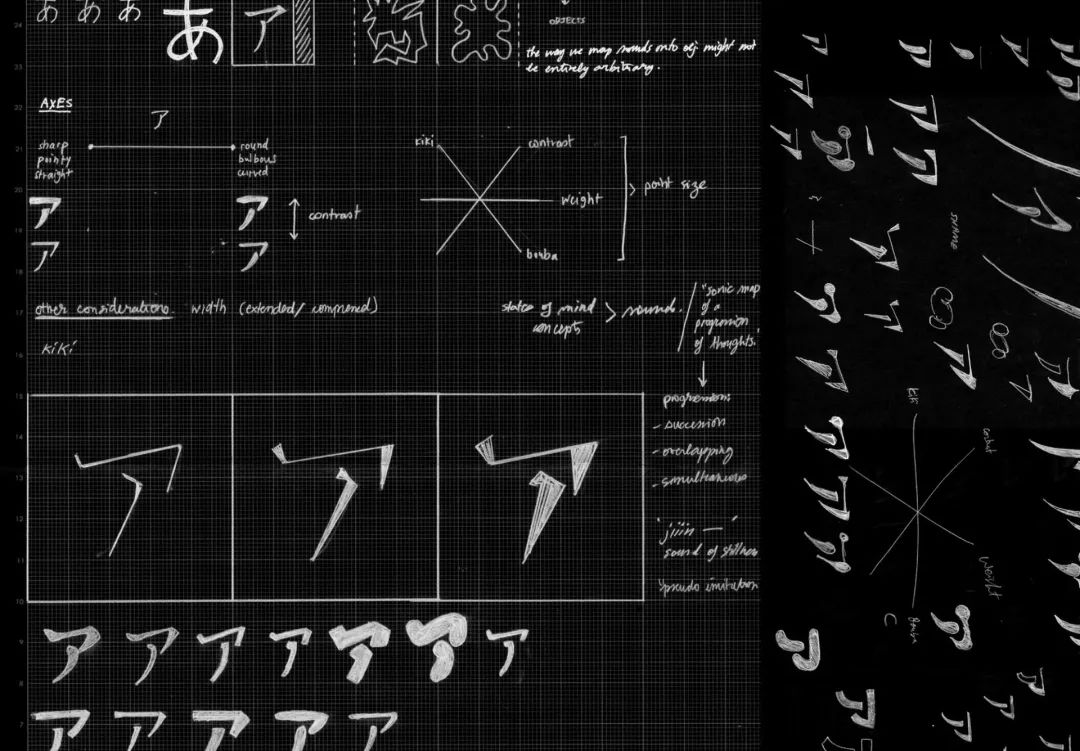 24
23
22
21
20
19
18
17
16
15
14
13
12
11
10
9
8
7
あ あ あ あ ア
OBJECTS
the way we map sounds onto obj might not
be entirely arbitrary.
AXES
ア
sharp
pointy
straight
round
bulbous
curved
ア ア
contrast
ア ア
kiki
contrast
weight
bouba
point size
other considerations width (extended/ compressed)
kiki
states of mind
concepts
> sound.
"sonic map
of a
progression
of thoughts."
progressions
- succession
- overlapping
- simultaneous
ア ア ア
'jiiin —'
sound of stillness
'pseudo imitation
ア ア ア ア ア ア ア
ア ア ア ア ア
kiki
contrast
weight
bouba